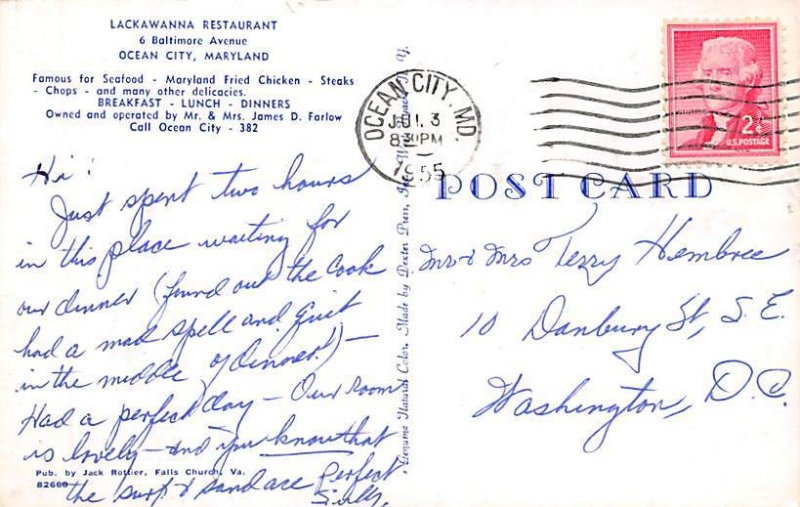 LACKAWANNA RESTAURANT
6 Baltimore Avenue
OCEAN CITY, MARYLAND
Famous for Seafood - Maryland Fried Chicken - Steaks
- Chops - and many other delicacies.
BREAKFAST - LUNCH - DINNERS
Owned and operated by Mr. & Mrs. James D. Farlow
Call Ocean City - 382
Hi!
Just spent two hours
in this place waiting for
our dinner (found out the Cook
had a mad spell and quit
in the middle of dinner!) —
Had a perfect day — Our room
is lovely — and you know that
the surf & sand are perfect
Pub. by Jack Rottier, Falls Church, Va.
Genuine Natural Color. Made by Dexter Press, Inc.
OCEAN CITY, MD.
JUL 3
8 PM
1955
2¢
U.S. POSTAGE
POST CARD
Mr & Mrs Terry Hembree
10 Danbury St, S.E.
Washington, D.C.